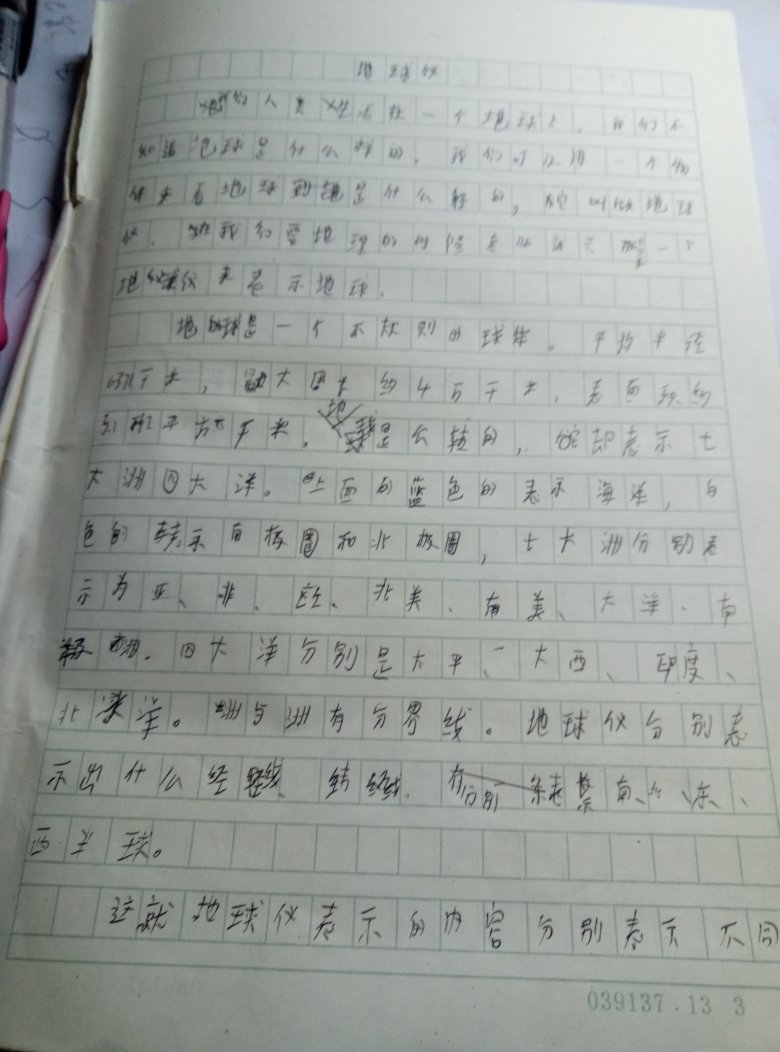 地球仪
人类生活在一个地球上，我们不
知道地球是什么样的。我们可以用一个物
体来看地球到地是什么样的，它叫做地球
仪。我们学地理的时候老师就会一个
地球仪来表示地球。
地球是一个不规则的球体。平均半径
6371千米，最大周长约4万千米，表面积约
5.1亿平方千米。地球是公转的，它却表示七
大洲四大洋。上面的蓝色的表示海洋，白
色的表示南极圈和北极圈，七大洲分别表
示为亚、非、欧、北美、南美、大洋、南
极洲。四大洋分别是太平、大西、印度、
北冰洋。洲与洲有分界线。地球仪分别表
示出什么经线、纬线。有分别南、北、东、
西半球。
这就地球仪表示的内容分别表示不同
039137.13 3